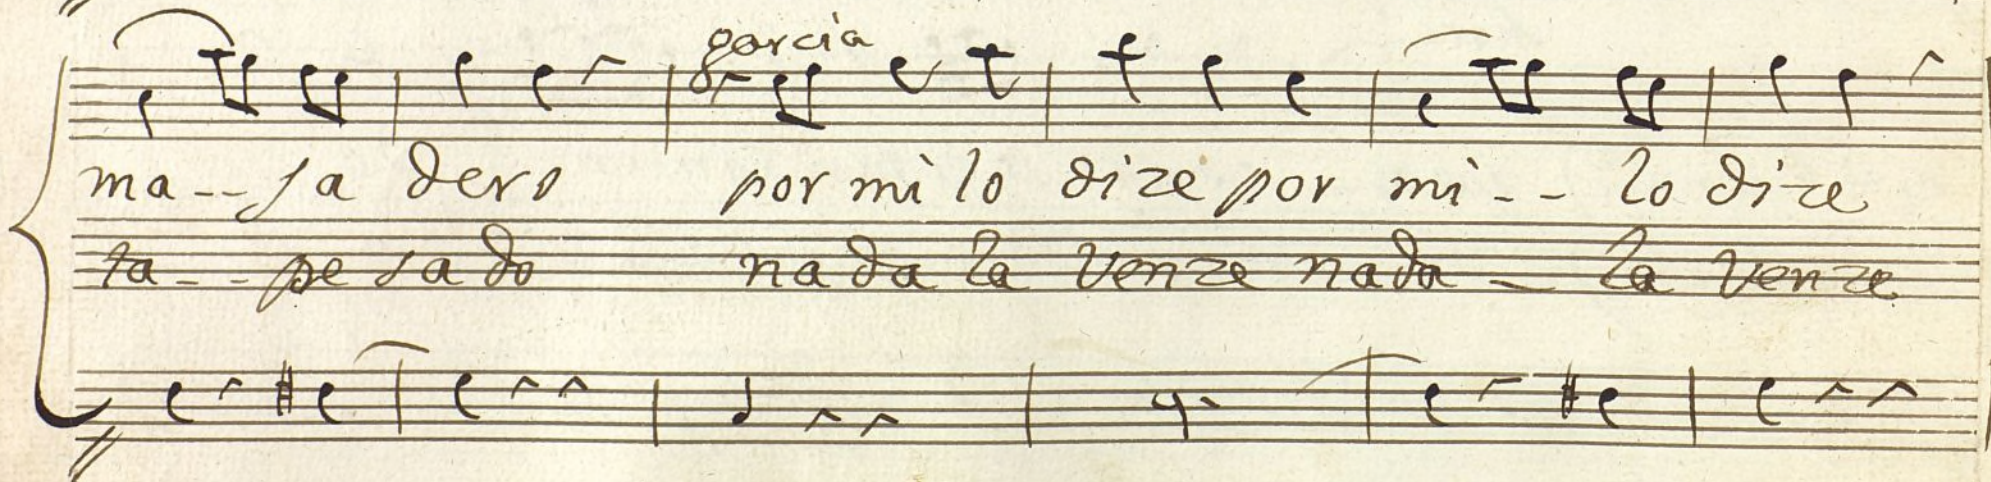 garcia
ma - - sa dero por mi lo dize por mi - - lo dize
ta - - pe sa do nada la venze nada - la venze